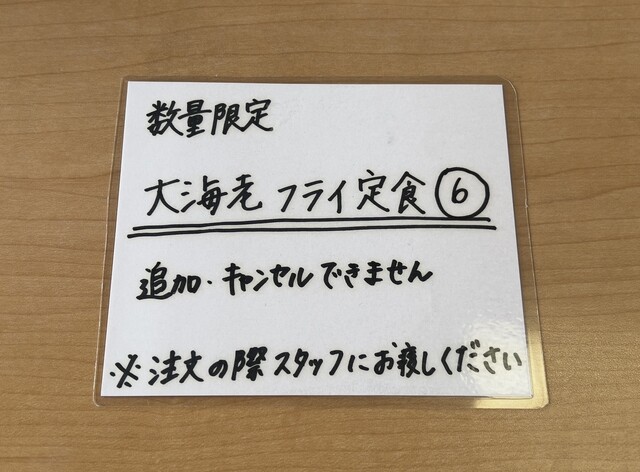 数量限定
大海老フライ定食⑥
追加・キャンセルできません
※注文の際スタッフにお渡しください